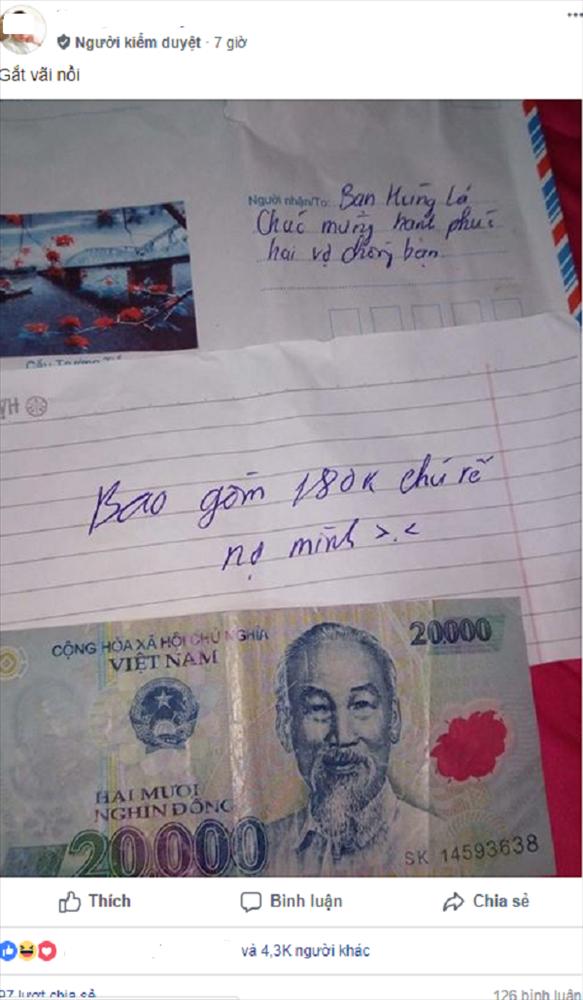 Người kiểm duyệt · 7 giờ
Gắt vãi nồi
Người nhận/To: Bạn Hùng Lá
Chúc mừng hạnh phúc
hai vợ chồng bạn
Bao gồm 180K chú rể
nợ mình >.<
CỘNG HÒA XÃ HỘI CHỦ NGHĨA
VIỆT NAM
20000
HAI MƯƠI
NGHÌN ĐỒNG
20000
SK 14593638
Thích
Bình luận
Chia sẻ
và 4,3K người khác
97 lượt chia sẻ
126 bình luận